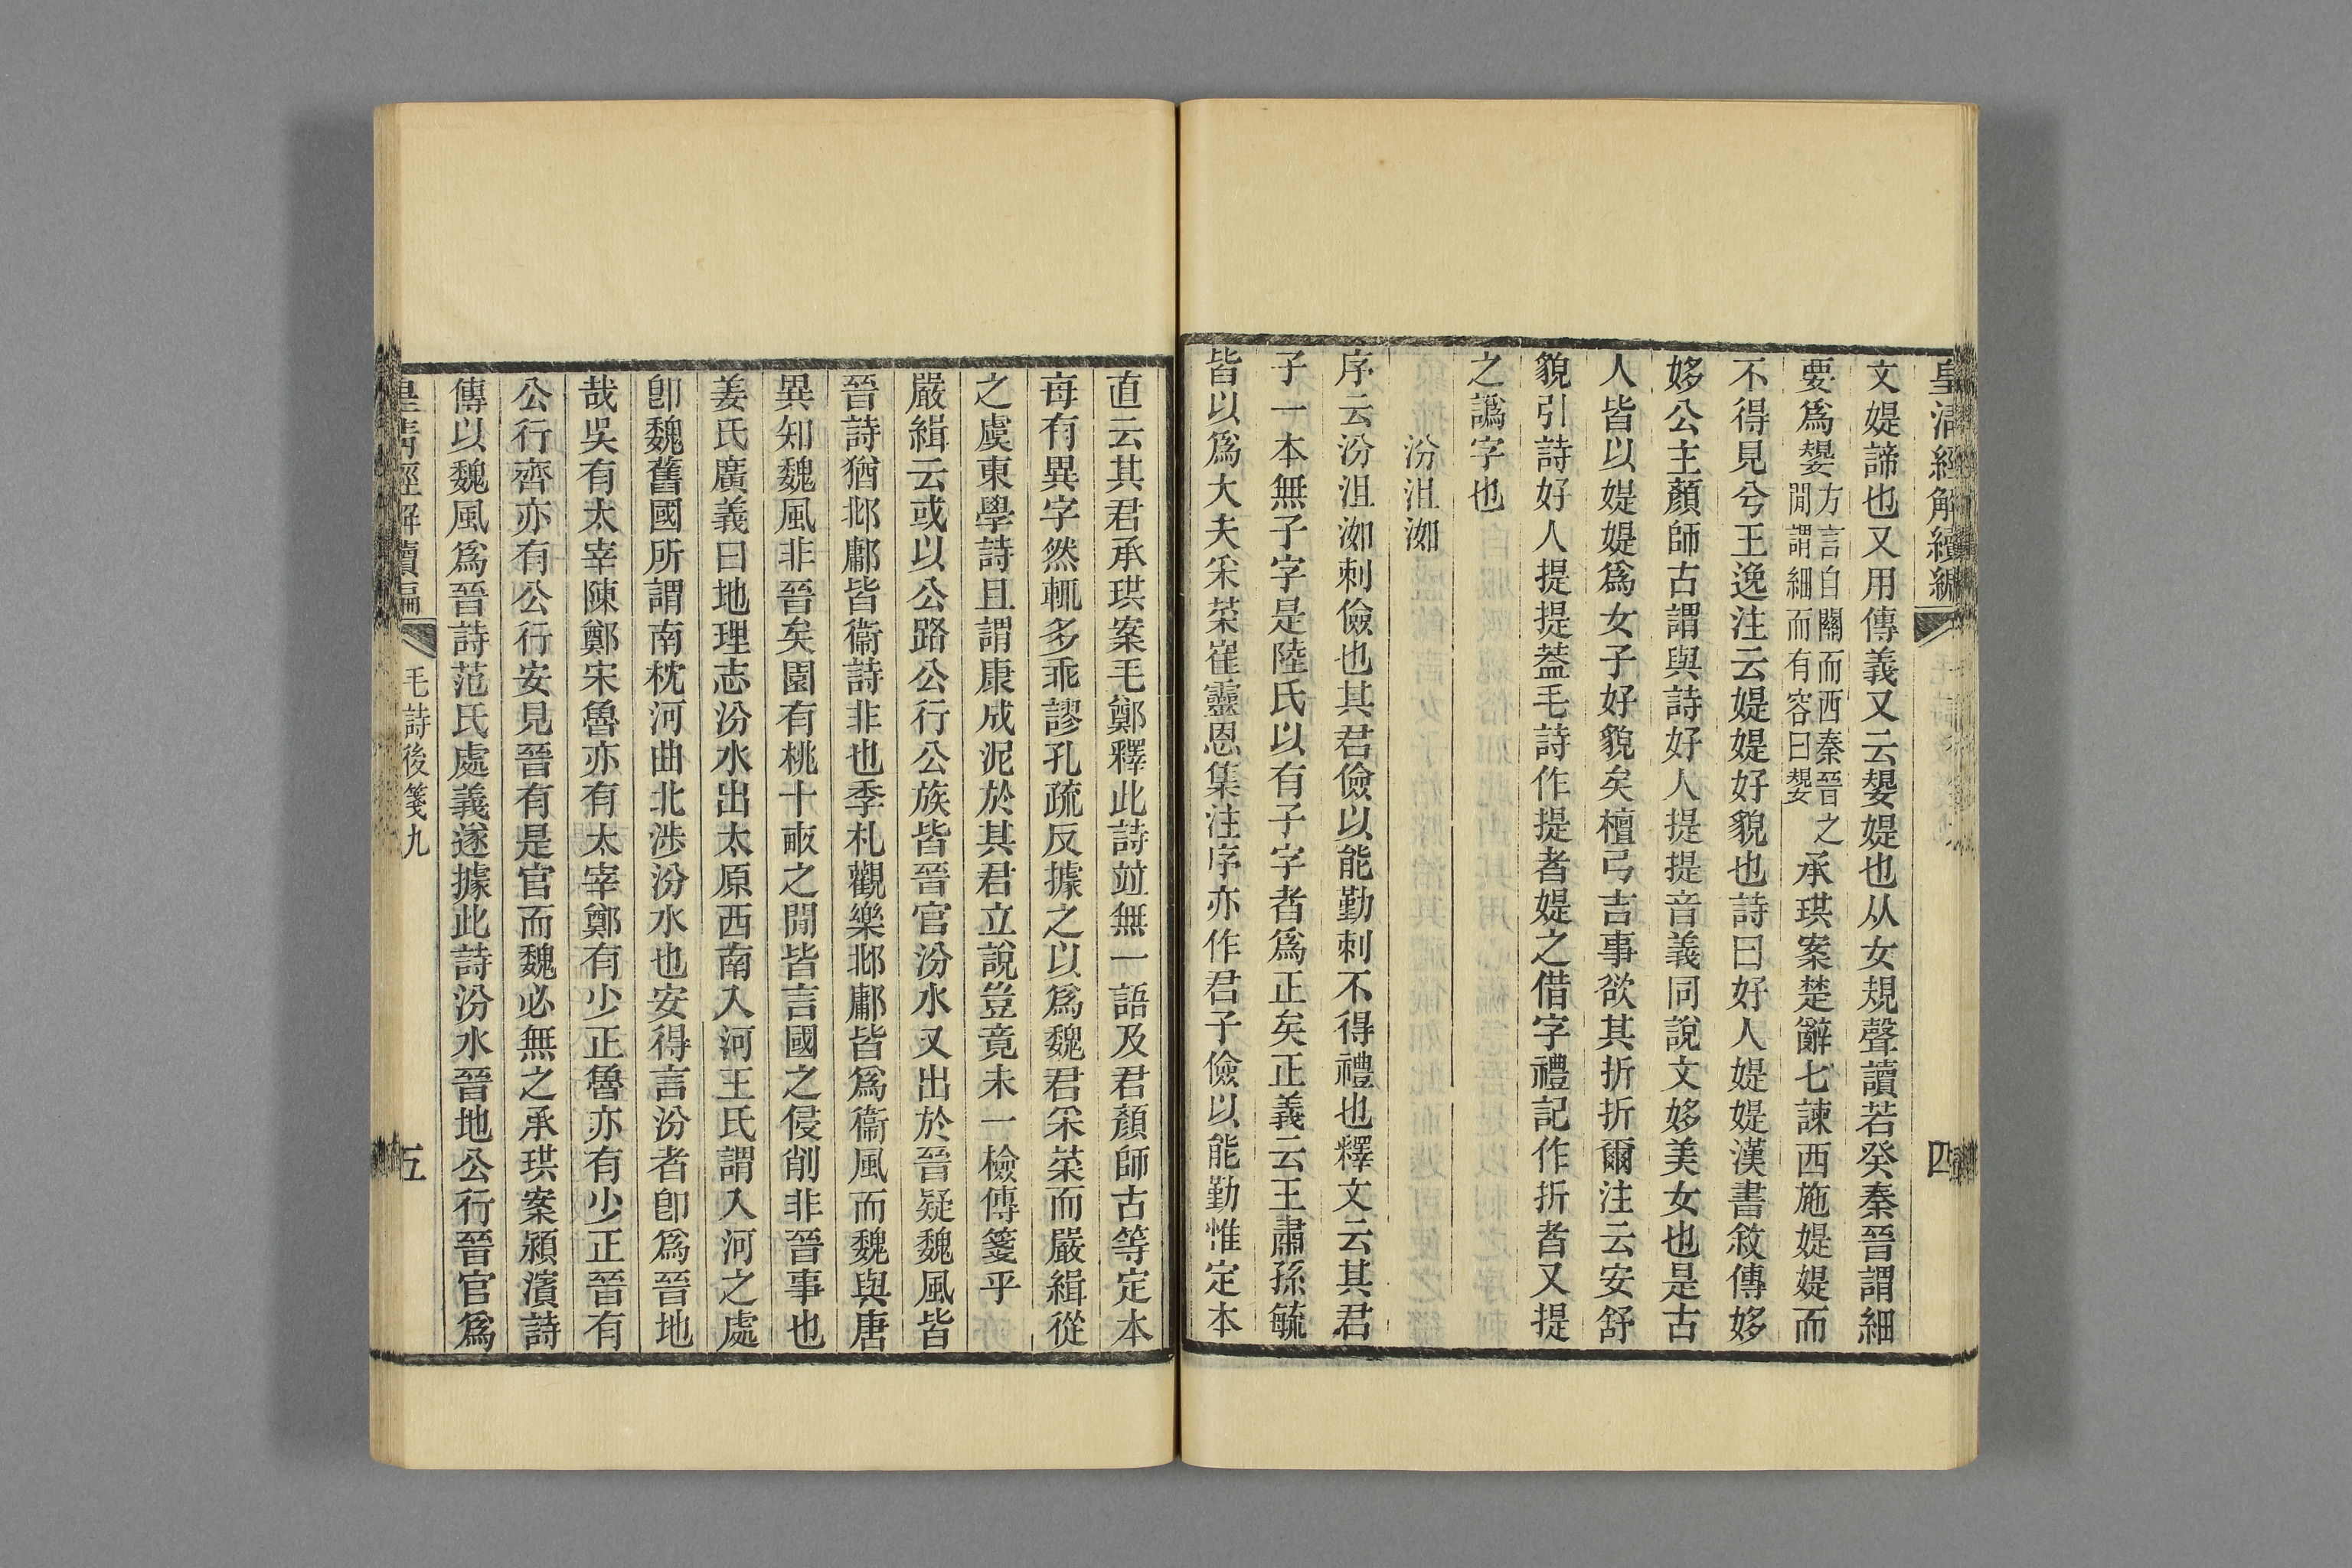 皇清經解續編
四
文媞諦也又用傳義又云嫢媞也从女規聲讀若癸秦晉謂細
要爲嫢方言自關而西秦晉之閒謂細而有容曰嫢承珙案楚辭七諫西施媞媞而
不得見兮王逸注云媞媞好貌也詩曰好人媞媞漢書敘傳姼
姼公主顏師古謂與詩好人提提音義同說文姼美女也是古
人皆以媞媞爲女子好貌矣檀弓吉事欲其折折爾注云安舒
貌引詩好人提提葢毛詩作提者媞之借字禮記作折者又提
之譌字也
汾沮洳
序云汾沮洳刺儉也其君儉以能勤刺不得禮也釋文云其君
子一本無子字是陸氏以有子字者爲正矣正義云王肅孫毓
皆以爲大夫采菜崔靈恩集注序亦作君子儉以能勤惟定本
直云其君承珙案毛鄭釋此詩竝無一語及君顏師古等定本
每有異字然輒多乖謬孔疏反據之以爲魏君采菜而嚴緝從
之虞東學詩且謂康成泥於其君立說豈竟未一檢傳箋乎
嚴緝云或以公路公行公族皆晉官汾水又出於晉疑魏風皆
晉詩猶邶鄘皆衞詩非也季札觀樂邶鄘皆爲衞風而魏與唐
異知魏風非晉矣園有桃十畝之閒皆言國之侵削非晉事也
姜氏廣義曰地理志汾水出太原西南入河王氏謂入河之處
卽魏舊國所謂南枕河曲北涉汾水也安得言汾者卽爲晉地
哉吳有太宰陳鄭宋魯亦有太宰鄭有少正魯亦有少正晉有
公行齊亦有公行安見晉有是官而魏必無之承珙案潁濱詩
傳以魏風爲晉詩范氏處義遂據此詩汾水晉地公行晉官爲
皇清經解續編
毛詩後箋九
五